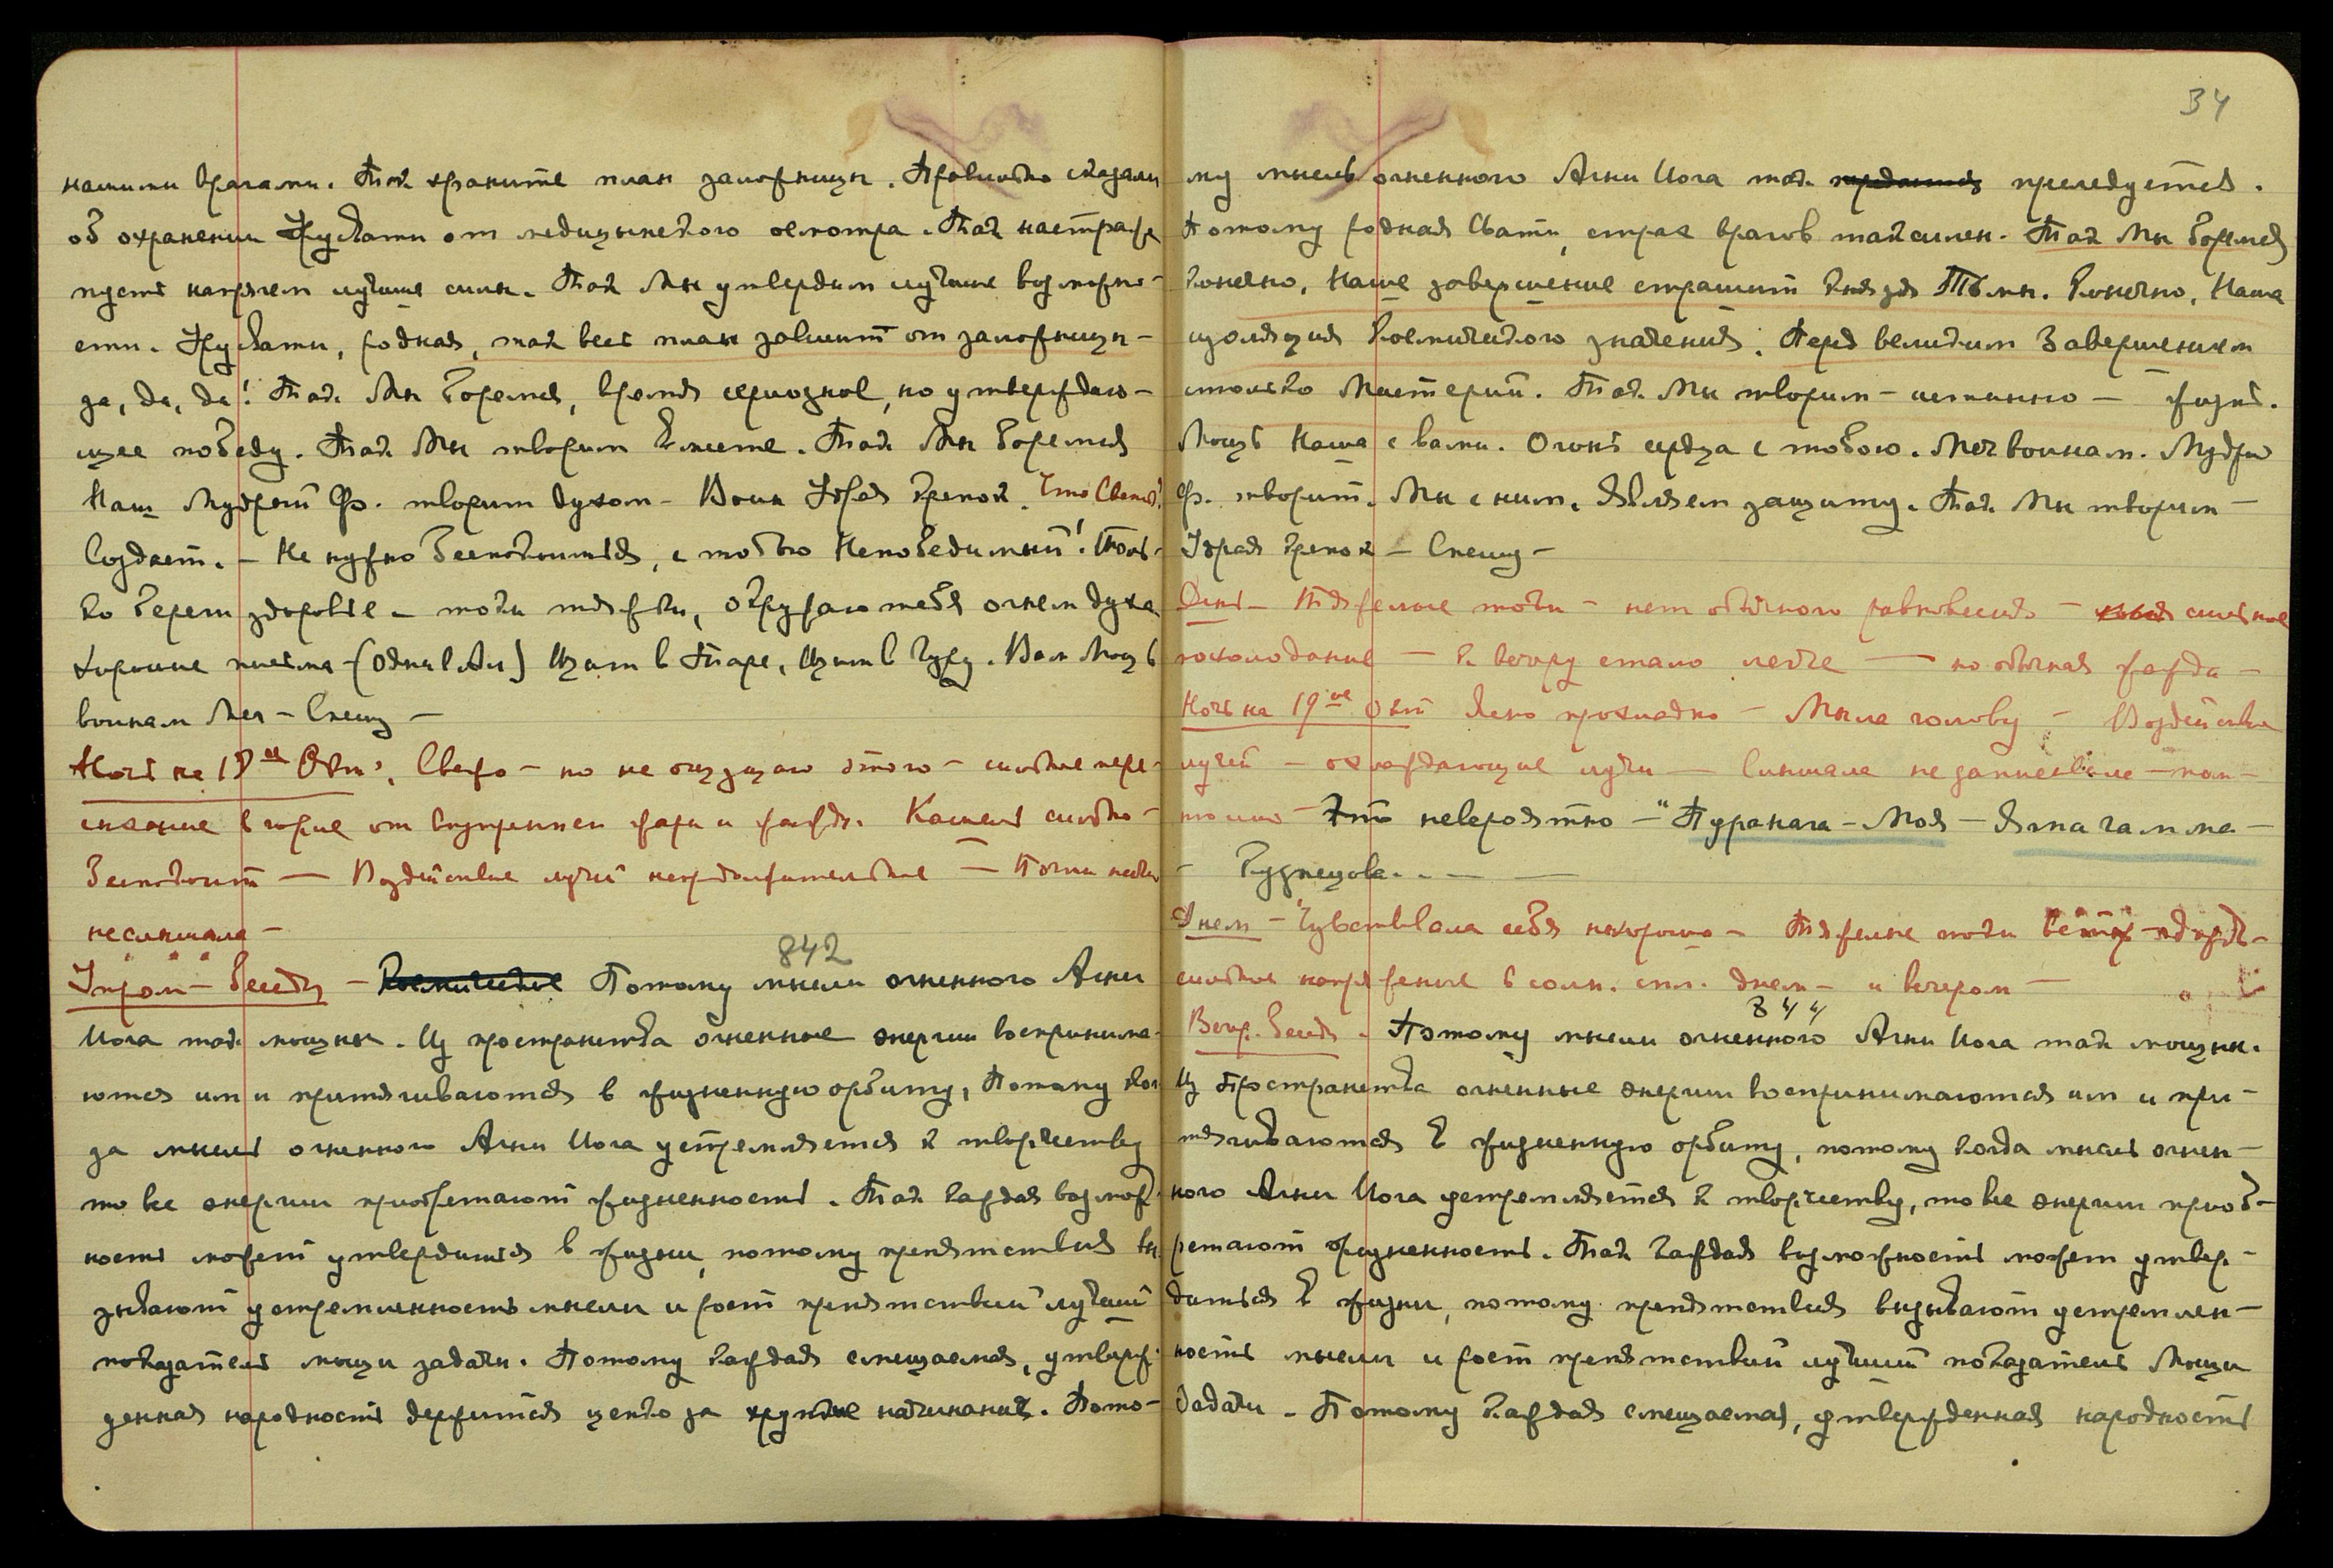 нашими врагами. Так храните план заложницы. Правильно сказали
об охранении Урусвати от медицинского осмотра. Так на страже
пусть напряжем лучшие силы. Так Мы утвердим лучшие возможно-
сти. Урусвати, родная, так весь план зависит от заложницы –
да, да, да! Так Мы боремся, время сериозное, но утверждаю-
щее победу. Так Мы творим вместе. Так Мы боремся
Наш Мудрый Ф. творит духом – Воин Удрая крепок. Что Светик?
Создает. – Не нужно беспокоиться, с тобою Непобедимый! Толь-
ко береги здоровье – токи тяжки, окружаю тебя огнем духа
хорошие письма – (Одни в Ам) Щит в Таре, Щит в Гуру. Вам Мощь
воинам Меч – Спешу –
Ночь на 18ое Окт., Свежо – но не ощущаю этого – сильное пере-
сыхание в горле от внутреннего жара и жажды. Кашель сильно –
беспокоит – Воздействие лучей непродолжительное – Почти ничего
не слышала –
842
Утром – Беседа – Космическое Потому мысли огненного Агни
Йога так мощны. Из пространства огненные энергии воспринима-
ются им и притягиваются в жизненную орбиту, потому ког-
да мысль огненного Агни Йога устремляется к творчеству
то все энергии приобретают жизненность. Так каждая возмож-
ность может утвердиться в жизни, потому препятствия вы-
зывают устремленность мысли и рост препятствий лучший
показатель мощи задачи. Потому каждая смещаемая, утверж-
денная народность держится цепко за хрупкие начинания. Пото-
34
му мысль огненного Агни Йога так преследуется.
Потому родная Свати, страх врагов так силен. Так Мы боремся
Конечно, Наше завершение страшит Князя Тьмы. Конечно, Наша
изоляция Космического значения. Перед великим Завершением
столько Мистерий. Так Мы творим – истинно – жизнь.
Мощь Наша с вами. Огонь сердца с тобою. Меч воинам. Мудрый
Ф. творит. Мы с ним. Являем защиту. Так Мы творим –
Удрая крепок – Спешу –
День – Тяжелые токи – нет обычного равновесия – сильное
похолодание – К вечеру стало легче – но обычная жажда –
Ночь на 19ое Окт Ясно прохладно – Мыла голову – Воздействие
лучей – охлаждающие лучи – Слышала не записывала – пом-
тошно – Это невероятно – "Пуранага – Моя – Яма гамма –
– Кузнецова. . –
Днем – Чувствовала себя нехорошо – Тяжелые токи
сильное напряжение в солн. спл. днем – и вечером –
844
Вечер. Беседа. Потому мысли огненного Агни Йога так мощны.
Из Пространства огненные энергии воспринимаются им и при-
тягиваются в жизненную орбиту, потому когда мысль огнен-
ного Агни Йога устремляется к творчеству, то все энергии приоб-
ретают жизненность. Так каждая возможность может утвер-
диться в жизни, потому препятствия вызывают устремлен-
ность мысли и рост препятствий лучший показатель Мощи
Задачи. Потому каждая смещаемая, утвержденная народность